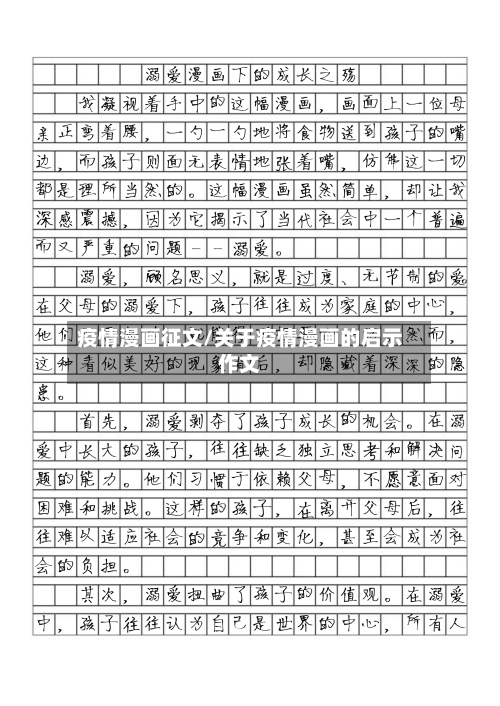 溺爱漫画下的成长之殇
我凝视着手中的这幅漫画，画面上一位母
亲正弯着腰，一勺一勺地将食物送到孩子的嘴
边，而孩子则面无表情地张着嘴，仿佛这一切
都是理所当然的。这幅漫画虽然简单，却让我
深感震撼，因为它揭示了当代社会中一个普遍
而又严重的问题－－溺爱。
溺爱，顾名思义，就是过度、无节制的爱。
在父母的溺爱下，孩子往往成为家庭的中心，
他们
然而，
疫情漫画征文/关于疫情漫画的启示
作文
这种看似美好的现象背后，却隐藏着深深的隐
患。
首先，溺爱剥夺了孩子成长的机会。在溺
爱中长大的孩子，往往缺乏独立思考和解决问
题的能力。他们习惯于依赖父母，不愿意面对
困难和挑战。这样的孩子，在离开父母后，往
往难以适应社会的竞争和变化，甚至会成为社
会的负担。
其次，溺爱扭曲了孩子的价值观。在溺爱
中，孩子往往认为自己是世界的中心，所有人